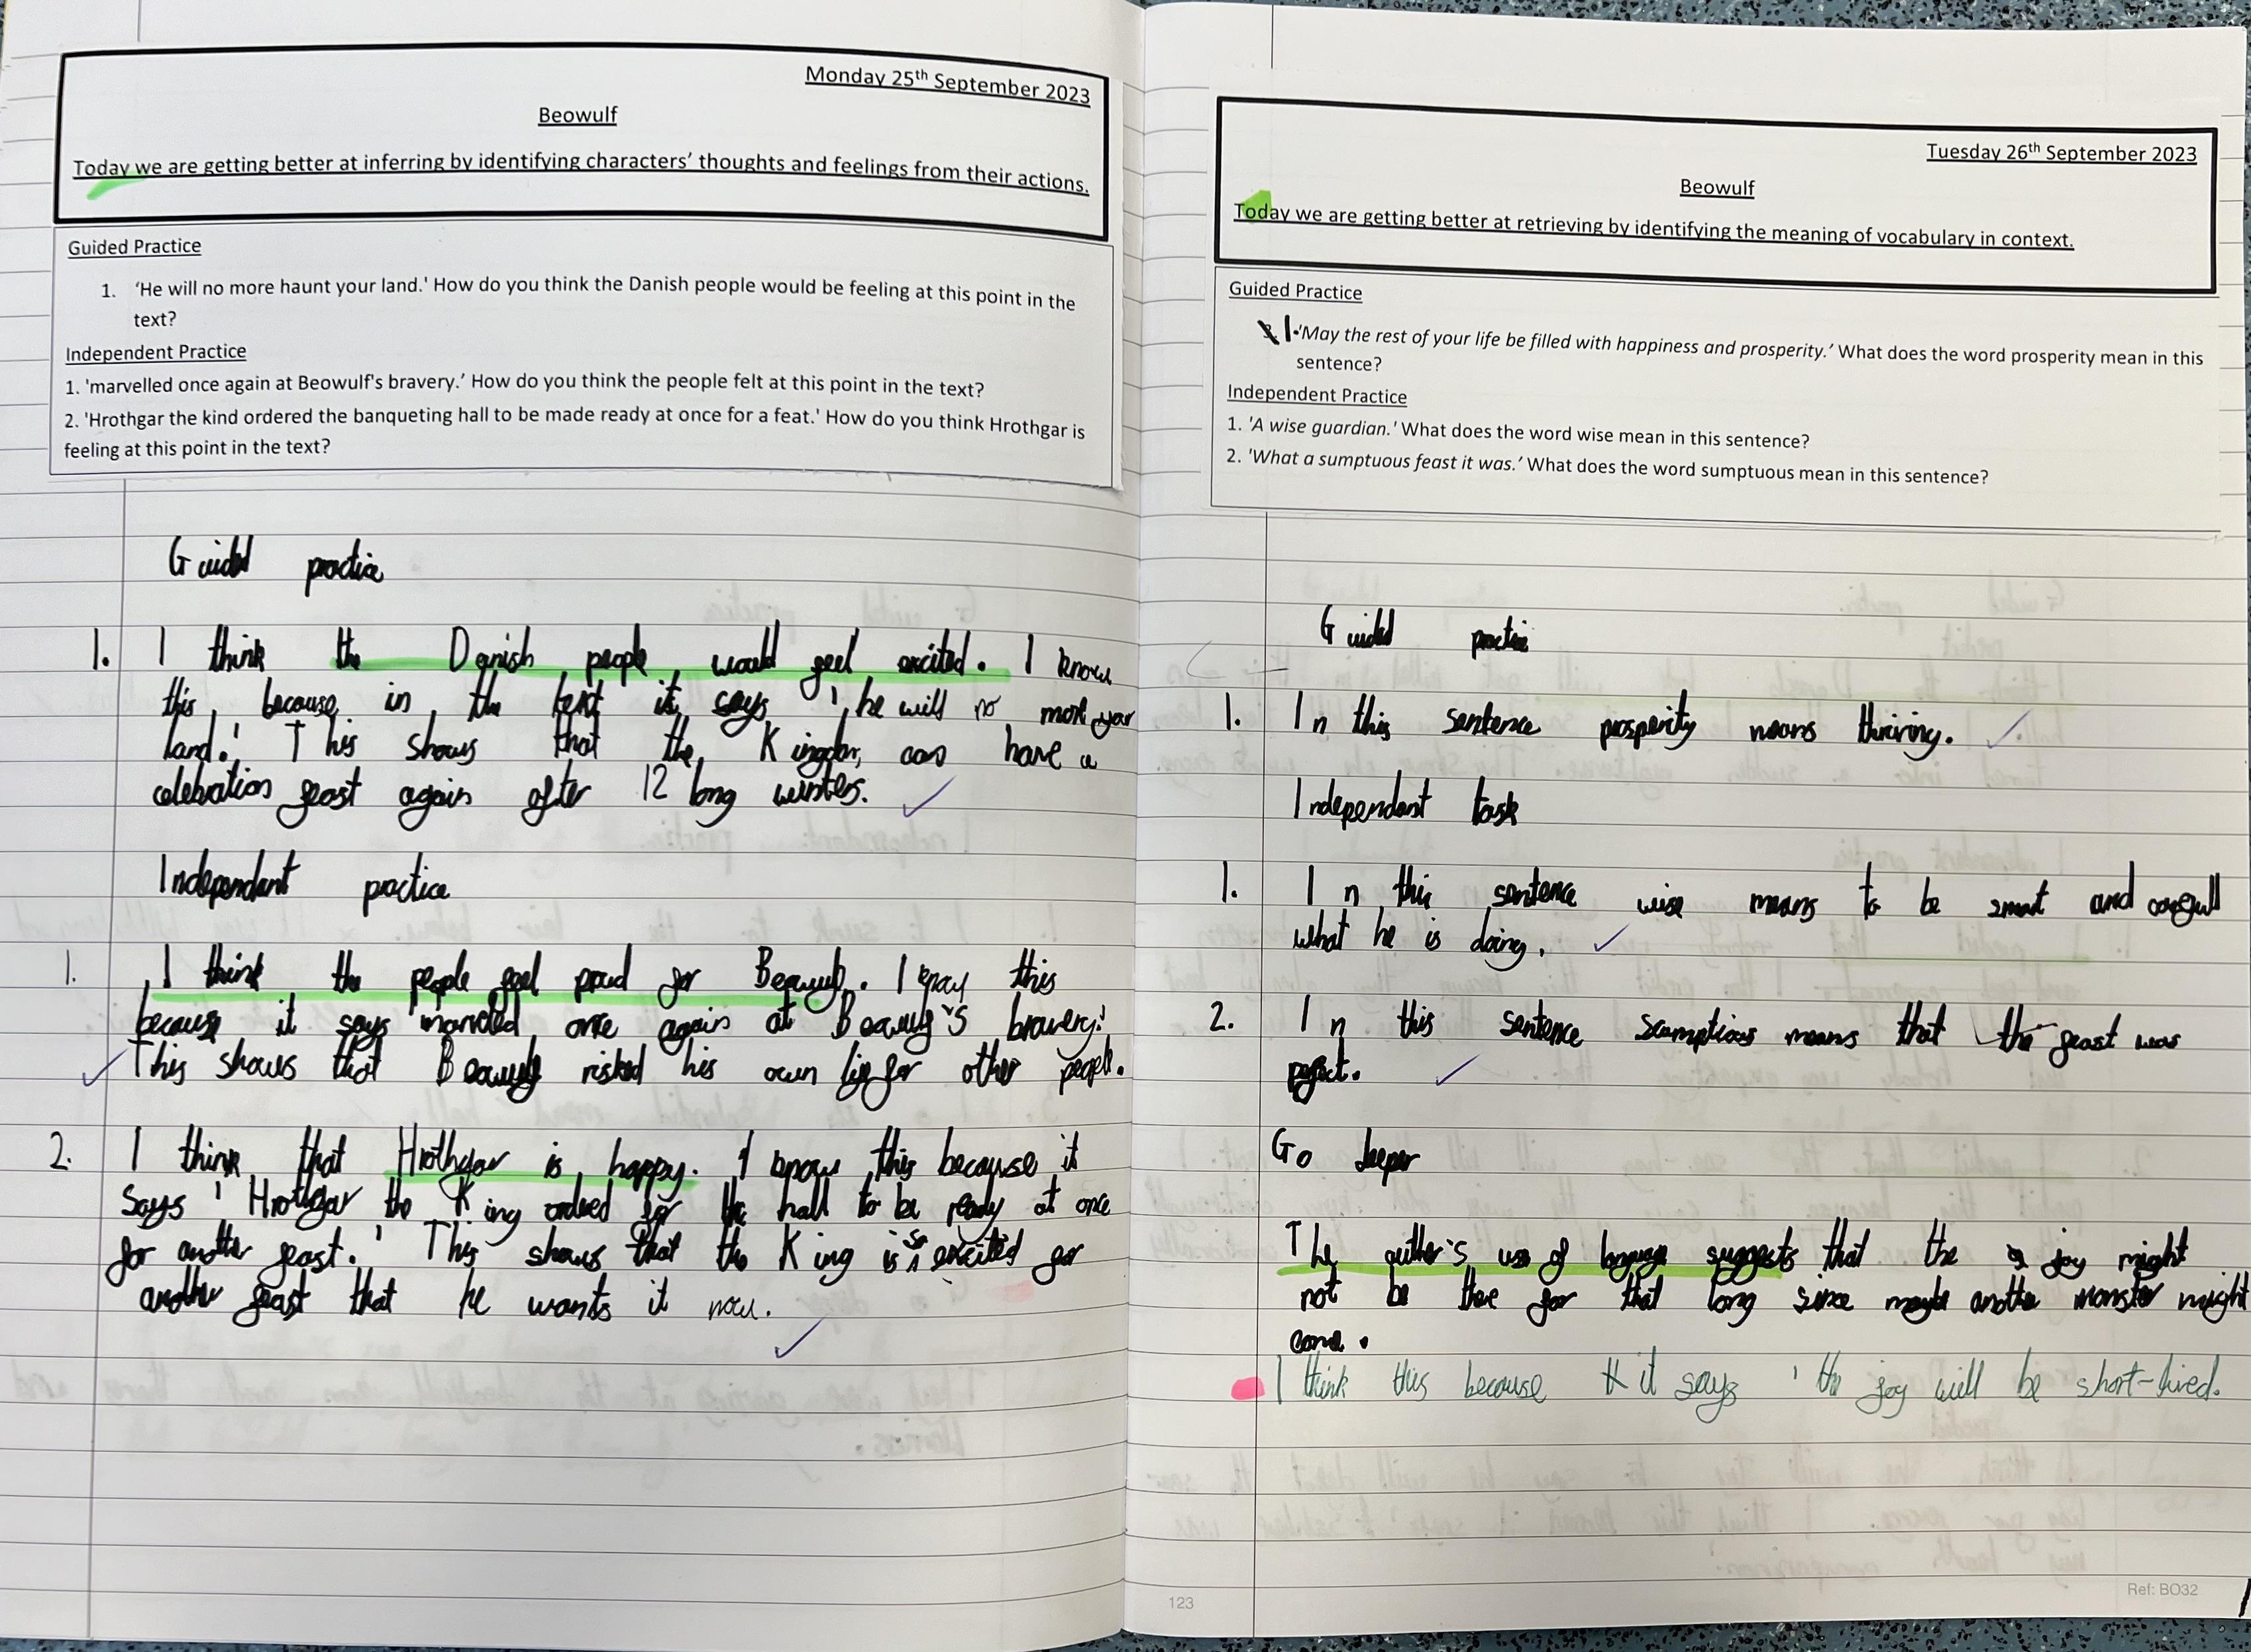 Monday 25th September 2023
Beowulf
Today we are getting better at inferring by identifying characters' thoughts and feelings from their actions.
Guided Practice
1. 'He will no more haunt your land.' How do you think the Danish people would be feeling at this point in the
text?
Independent Practice
1. 'marvelled once again at Beowulf's bravery.' How do you think the people felt at this point in the text?
2. 'Hrothgar the kind ordered the banqueting hall to be made ready at once for a feat.' How do you think Hrothgar is
feeling at this point in the text?
Guided practice
1. I think the Danish people would feel excited. I know
this because in the text it says 'he will no more your
land.' This shows that the Kingdom can have a
celebration feast again after 12 long winters.
Independent practice
1. I think the people feel proud for Beowulf. I know this
because it says 'marveled once again at Beowulf's bravery.'
This shows that Beowulf risked his own life for other people.
2. I think that Hrothgar is happy. I know this because it
says 'Hrothgar the King ordered for the hall to be ready at once
for another feast.' This shows that the King is so excited for
another feast that he wants it now.
Tuesday 26th September 2023
Beowulf
Today we are getting better at retrieving by identifying the meaning of vocabulary in context.
Guided Practice
1. 'May the rest of your life be filled with happiness and prosperity.' What does the word prosperity mean in this
sentence?
Independent Practice
1. 'A wise guardian.' What does the word wise mean in this sentence?
2. 'What a sumptuous feast it was.' What does the word sumptuous mean in this sentence?
Guided practice
1. In this sentence prosperity means thriving.
Independent task
1. In this sentence wise means to be smart and carefull
what he is doing.
2. In this sentence scumptious means that the feast was
perfect.
Go deeper
The author's use of language suggests that the joy might
not be there for that long since maybe another monster might
come.
I think this because it says 'the joy will be short-lived.
123
Ref: BO32